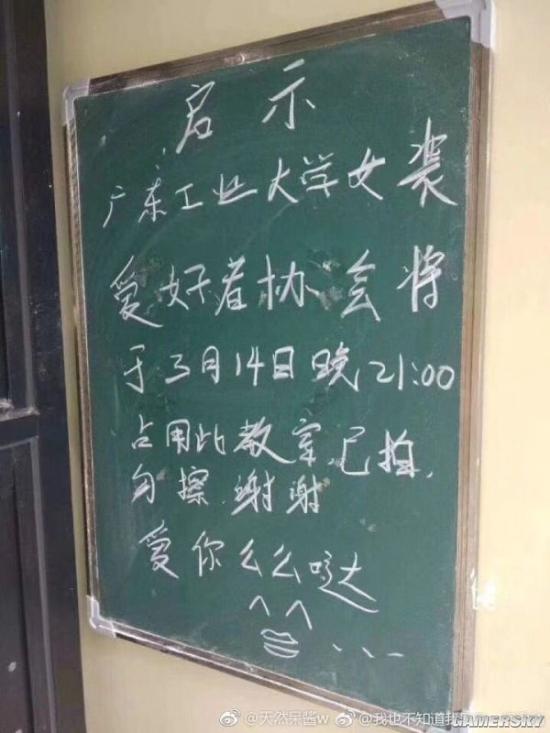 启示
广东工业大学女装
爱好者协会将
于3月14日晚21:00
占用此教室,已拍,
勿擦.谢谢
爱你么么哒
^ ^
...
@天然呆酱w @我也不知道我
GAMERSKY